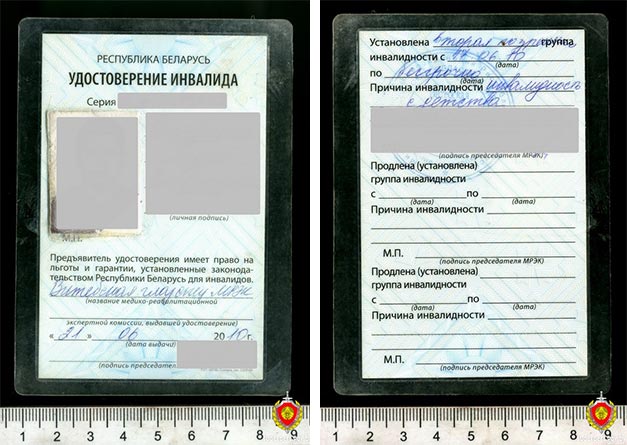 РЕСПУБЛИКА БЕЛАРУСЬ
УДОСТОВЕРЕНИЕ ИНВАЛИДА
Серия
(личная подпись)
М.П.
Предъявитель удостоверения имеет право на
льготы и гарантии, установленные законода-
тельством Республики Беларусь для инвалидов.
Витебская МРЭК
(название медико-реабилитационной
экспертной комиссии, выдавшей удостоверение)
« 21 » 06 2010 г.
(дата выдачи)
(подпись председателя
1 2 3 4 5 6 7 8 9
Установлена вторая группа
инвалидности с 06.10
(дата)
по бессрочно
(дата)
Причина инвалидности инвалидность
с детства
(подпись председателя МРЭК)
Продлена (установлена)
группа инвалидности
с по
(дата) (дата)
Причина инвалидности
М.П.
(подпись председателя МРЭК)
Продлена (установлена)
группа инвалидности
с по
(дата) (дата)
Причина инвалидности
М.П.
(подпись председателя МРЭК)
1 2 3 4 5 6 7 8 9